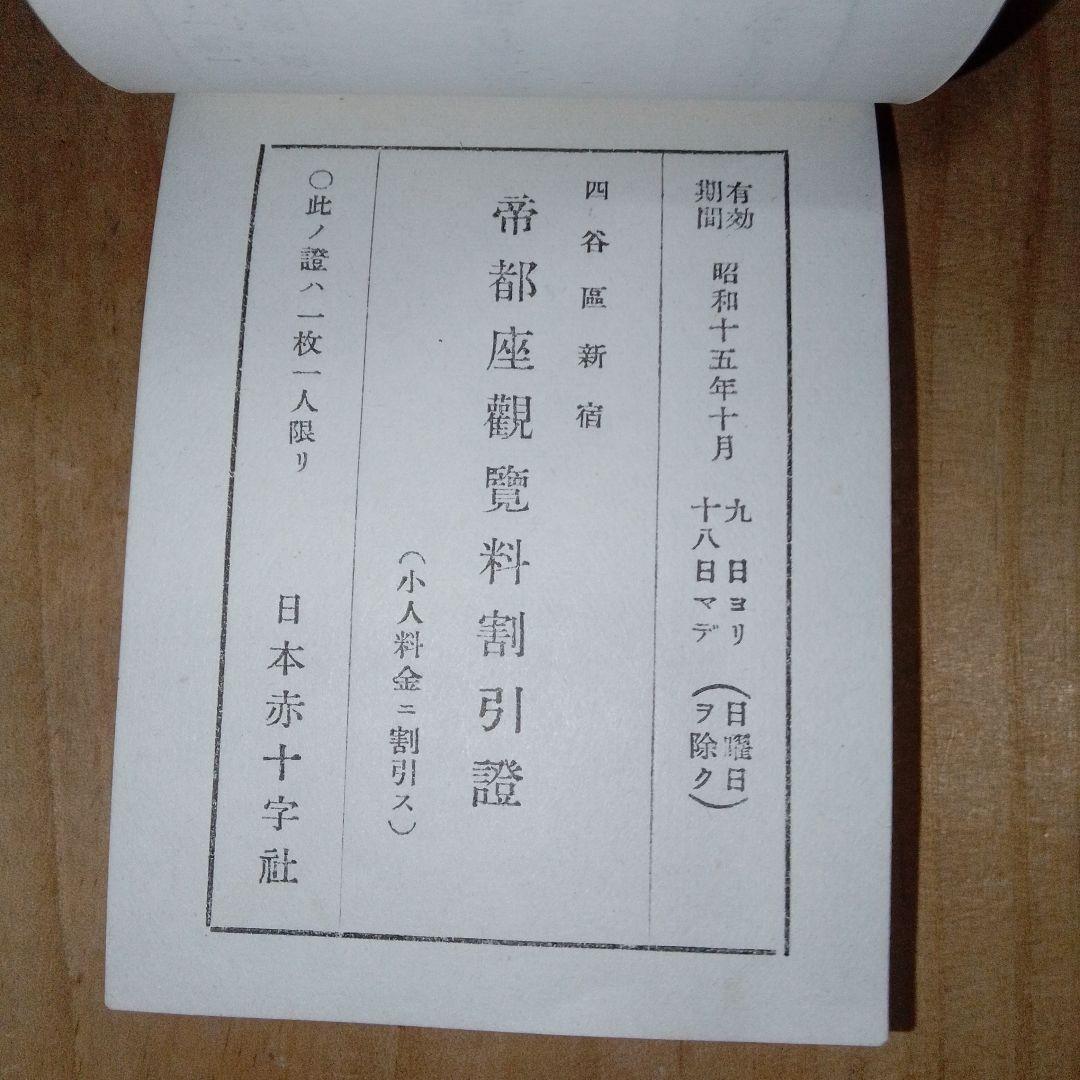 有効期間 昭和十五年十月 九日ヨリ十八日マデ (日曜日ヲ除ク)
四谷區新宿
帝都座觀覽料割引證
(小人料金ニ割引ス)
〇此ノ證ハ一枚一人限リ
日本赤十字社